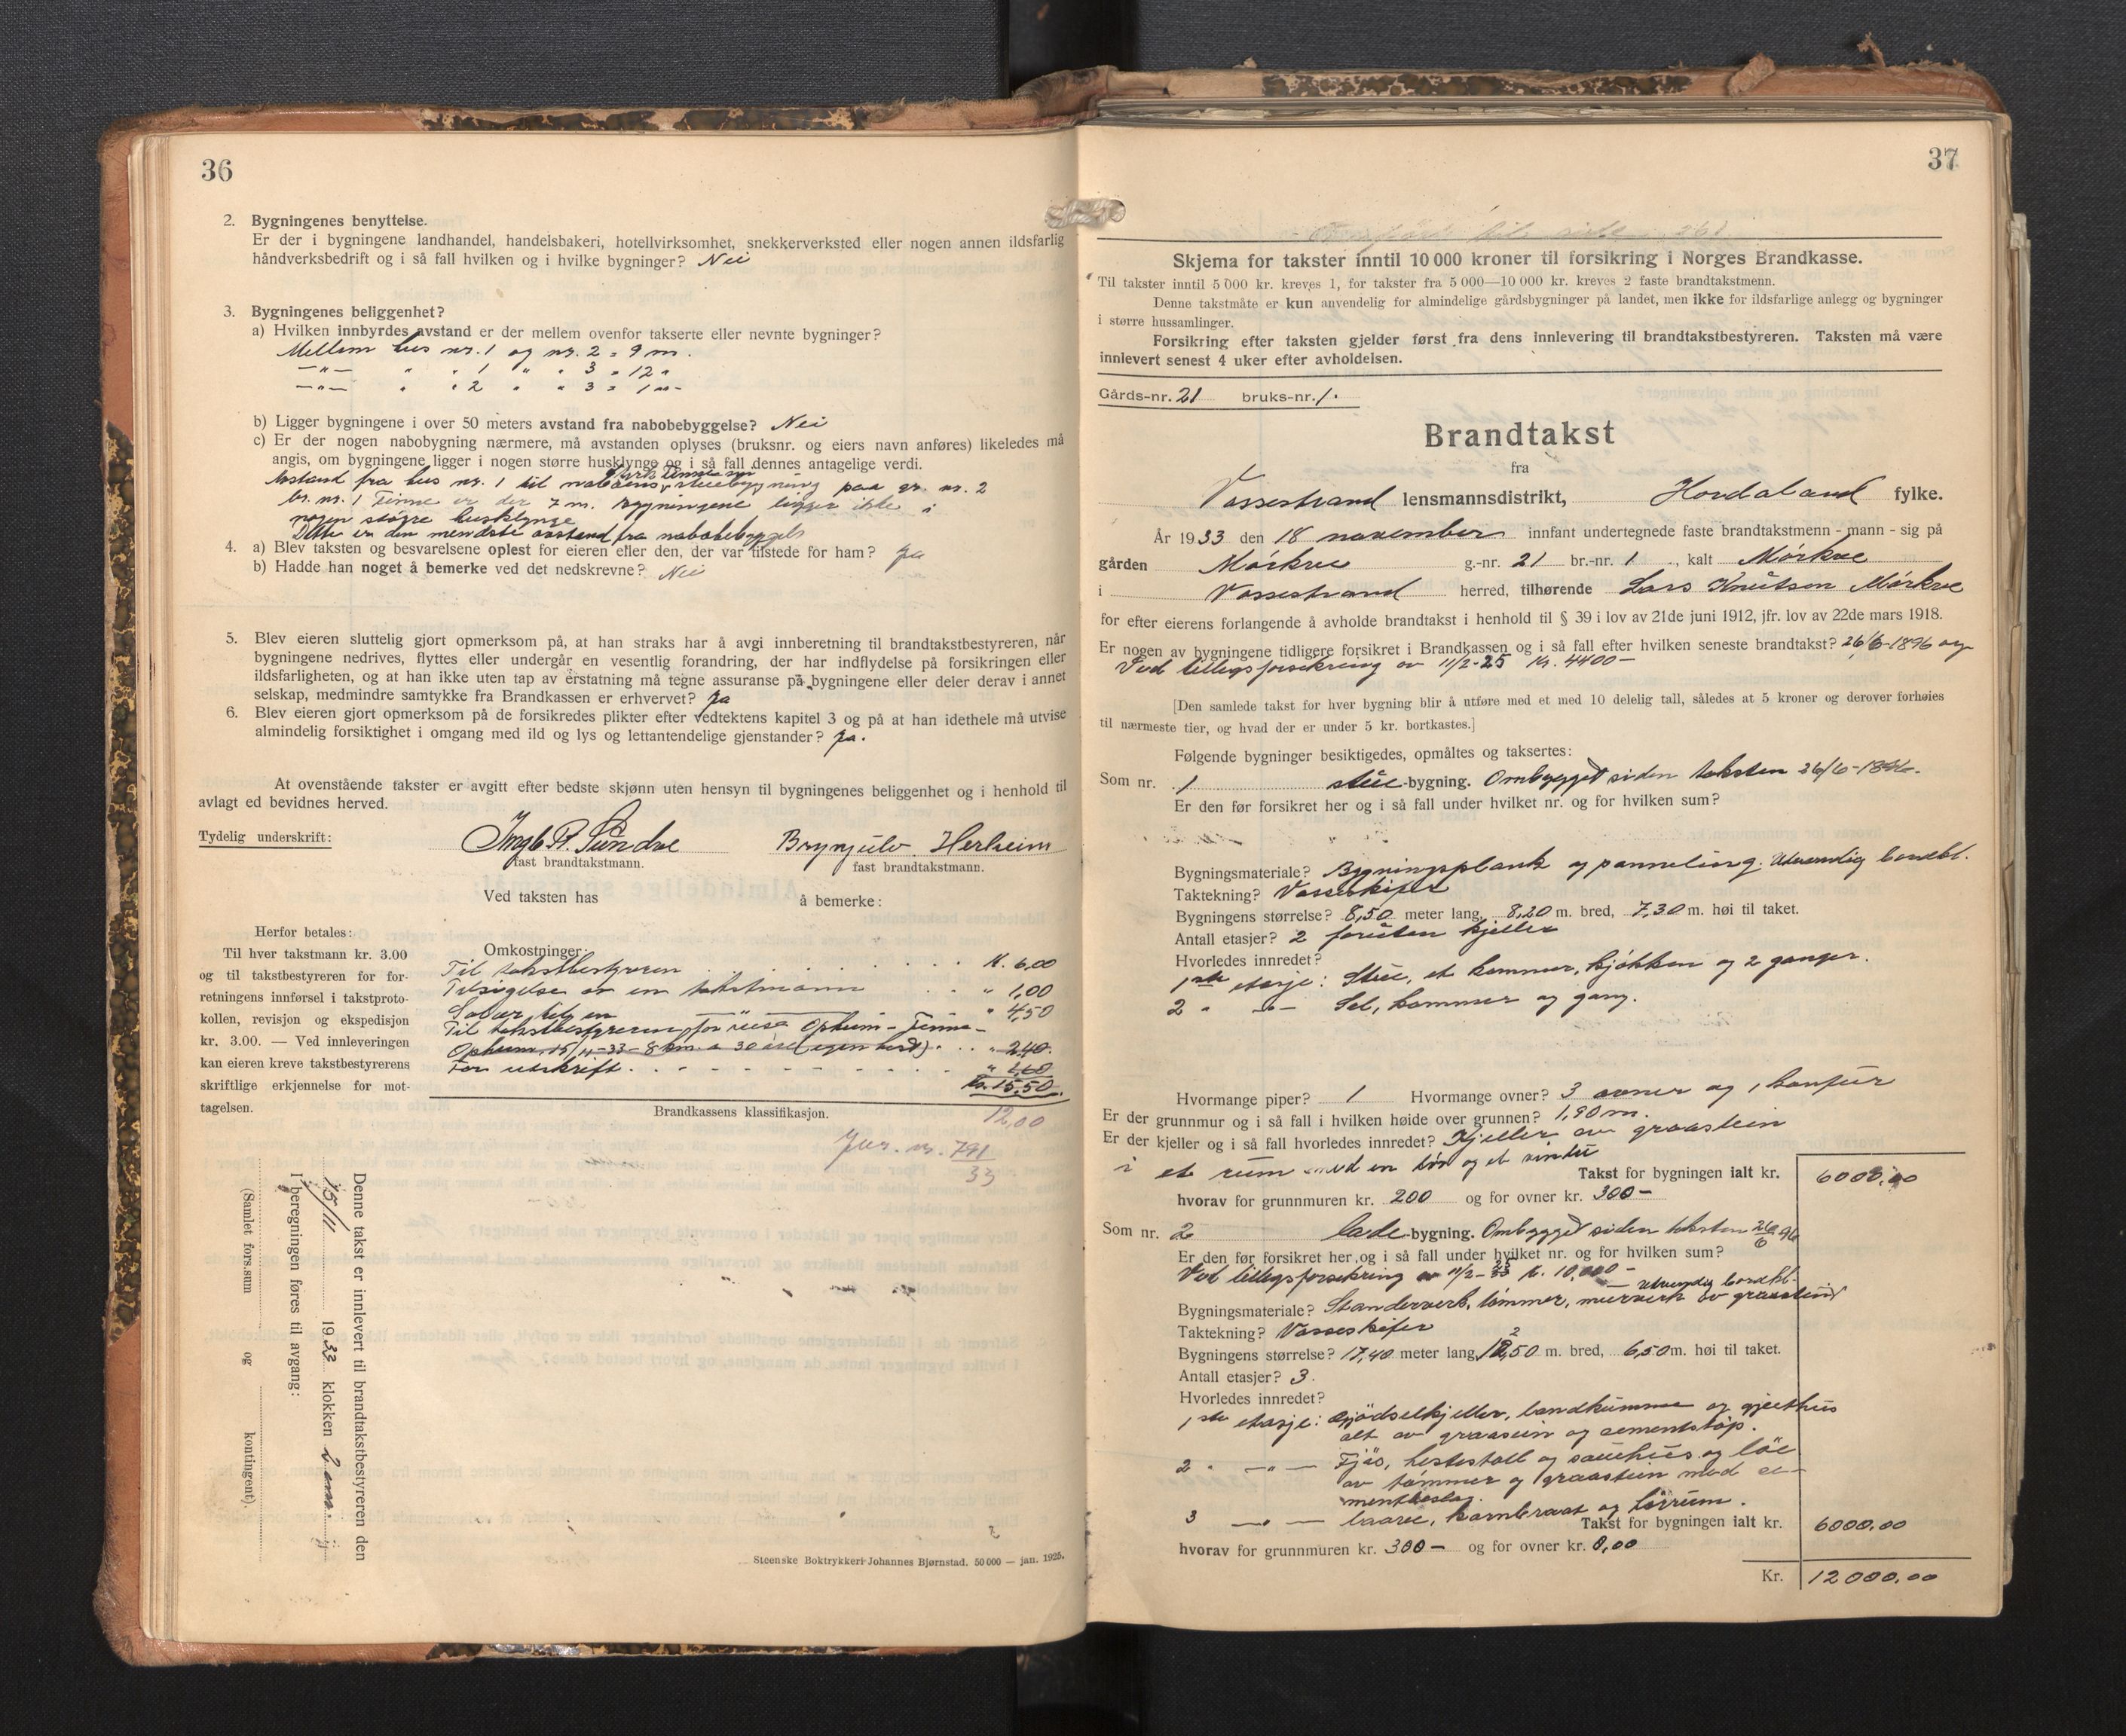 36
2. Bygningenes benyttelse.
Er der i bygningene landhandel, handelsbakeri, hotellvirksomhet, snekkerverksted eller nogen annen ildsfarlig
håndverksbedrift og i så fall hvilken og i hvilke bygninger? Nei
3. Bygningenes beliggenhet?
a) Hvilken innbyrdes avstand er der mellem ovenfor takserte eller nevnte bygninger?
Mellem hus nr. 1 og nr. 2 = 9 m.
—"— " " 1 " " 3 = 12 "
—"— " " 2 " " 3 = 1 m-
b) Ligger bygningene i over 50 meters avstand fra nabobebyggelse? Nei
c) Er der nogen nabobygning nærmere, må avstanden oplyses (bruksnr. og eiers navn anføres) likeledes må
angis, om bygningene ligger i nogen større husklynge og i så fall dennes antagelige verdi.
Avstand fra hus nr. 1 til naboens stuebygning paa gr. nr. 2
br. nr. 1 Finne er der 7 m. Bygningene ligger ikke i
nogen større husklynge
Dette er den mendste avstand fra nabobebyggels
4. a) Blev taksten og besvarelsene oplest for eieren eller den, der var tilstede for ham? Ja
b) Hadde han noget å bemerke ved det nedskrevne? Nei
5. Blev eieren sluttelig gjort opmerksom på, at han straks har å avgi innberetning til brandtakstbestyreren, når
bygningene nedrives, flyttes eller undergår en vesentlig forandring, der har indflydelse på forsikringen eller
ildsfarligheten, og at han ikke uten tap av erstatning må tegne assuranse på bygningene eller deler derav i annet
selskap, medmindre samtykke fra Brandkassen er erhvervet? Ja
6. Blev eieren gjort opmerksom på de forsikredes plikter efter vedtektens kapitel 3 og på at han idethele må utvise
almindelig forsiktighet i omgang med ild og lys og lettantendelige gjenstander? Ja.
At ovenstående takster er avgitt efter bedste skjønn uten hensyn til bygningenes beliggenhet og i henhold til
avlagt ed bevidnes herved.
Tydelig underskrift: Ingb. R. Sundve Brynjulv Herheim
fast brandtakstmann. fast brandtakstmann.
Ved taksten has å bemerke:
Herfor betales:
Til hver takstmann kr. 3.00
og til takstbestyreren for for-
retningens innførsel i takstproto-
kollen, revisjon og ekspedisjon
kr. 3.00. — Ved innleveringen
kan eieren kreve takstbestyrerens
skriftlige erkjennelse for mot-
tagelsen.
Omkostninger:
Til takstbestyreren . . . K. 6,00
Tilsigelse av en takstmann . . " 1,00
" 4,50
Til takstbestyreren for reise Opheim - Finne -
Opheim 15/11-33 - 8 km. a 30 øre (egen hest) . . " 2,40.
For utskrift . . . " 1,60
Kr. 15,50.
Brandkassens klassifikasjon.
12,00
Jur. nr. 791/33
Denne takst er innlevert til brandtakstbestyreren den
15/11 1933 klokken 2 em.
I beregningen føres til avgang:
(Samlet fors.sum og kontingent).
Steenske Boktrykkeri Johannes Bjørnstad. 50 000 — jan. 1925.
37
Skjema for takster inntil 10 000 kroner til forsikring i Norges Brandkasse.
Til takster inntil 5 000 kr. kreves 1, for takster fra 5 000—10 000 kr. kreves 2 faste brandtakstmenn.
Denne takstmåte er kun anvendelig for almindelige gårdsbygninger på landet, men ikke for ildsfarlige anlegg og bygninger
i større hussamlinger.
Forsikring efter taksten gjelder først fra dens innlevering til brandtakstbestyreren. Taksten må være
innlevert senest 4 uker efter avholdelsen.
Gårds-nr. 21 bruks-nr. 1.
Brandtakst
fra
Vossestrand lensmannsdistrikt, Hordaland fylke.
År 1933 den 18 november innfant undertegnede faste brandtakstmenn - mann - sig på
gården Mørkve g.-nr. 21 br.-nr. 1, kalt Mørkve
i Vossestrand herred, tilhørende Lars Knutson Mørkve
for efter eierens forlangende å avholde brandtakst i henhold til § 39 i lov av 21de juni 1912, jfr. lov av 22de mars 1918.
Er nogen av bygningene tidligere forsikret i Brandkassen og i så fall efter hvilken seneste brandtakst? 26/6-1896 og
Ved tillegsforsikring av 11/2-25 kr. 4400-
[Den samlede takst for hver bygning blir å utføre med et med 10 delelig tall, således at 5 kroner og derover forhøies
til nærmeste tier, og hvad der er under 5 kr. bortkastes.]
Følgende bygninger besiktigedes, opmåltes og taksertes:
Som nr. 1 stue-bygning. Ombygget siden taksten 26/6-1896.
Er den før forsikret her og i så fall under hvilket nr. og for hvilken sum?
Bygningsmateriale? Bygningsplank og panneling. Utvendig bordkl.
Taktekning? Vosseskifer
Bygningens størrelse? 8,50 meter lang, 8,20 m. bred, 7,30 m. høi til taket.
Antall etasjer? 2 foruten kjeller
Hvorledes innredet?
1ste etasje: Stue, et kammer, kjøkken og 2 ganger.
2 " —"— Sal, kammer og gang.
Hvormange piper? 1 Hvormange ovner? 3 ovner og 1 komfur
Er der grunnmur og i så fall i hvilken høide over grunnen? 1,90 m.
Er der kjeller og i så fall hvorledes innredet? Kjeller av graastein
i et rum med en dør og et vindu
Takst for bygningen ialt kr. 6000,00
hvorav for grunnmuren kr. 200 og for ovner kr. 300-
Som nr. 2 løde-bygning. Ombygget siden taksten 26/6 96
Er den før forsikret her og i så fall under hvilket nr. og for hvilken sum?
Ved tillegsforsikring av 11/2-25 kr. 10,000-
— utvendig bordkl.
Bygningsmateriale? Standerverk, tømmer, murverk av graastein
Taktekning? Vosseskifer
Bygningens størrelse? 17,40 meter lang, 12,50 m. bred, 6,50 m. høi til taket.
Antall etasjer? 3.
Hvorledes innredet?
1ste etasje: Gjødselkjeller, landkumme og gjeithus
alt av graastein og sementstøp.
2 " —"— Fjøs, hestestall og sauehus og løe
av tømmer og graastein med se-
mentbeslag.
3 —"— laave, og tørrum.
Takst for bygningen ialt kr. 6000,00
hvorav for grunnmuren kr. 300- og for ovner kr. 0,00
Kr. 12000,00